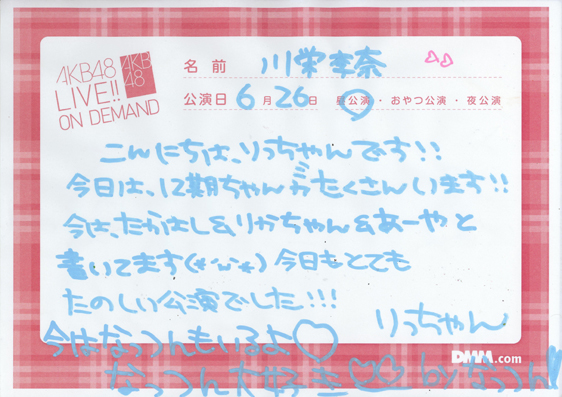 AKB48
LIVE!!
ON DEMAND
AKB
48
名前 川栄李奈
公演日 6月26日 昼公演・おやつ公演・夜公演
こんにちは、りっちゃんです!!
今日は、12期ちゃんがたくさんいます!!
今は、たかはし&りかちゃん&あーやと
書いてます(*'ω'*)今日もとても
たのしい公演でした!!!
りっちゃん
今はなっつんもいるよ♡
なっつん大好き♡♡byなっつん!!
DMM.com